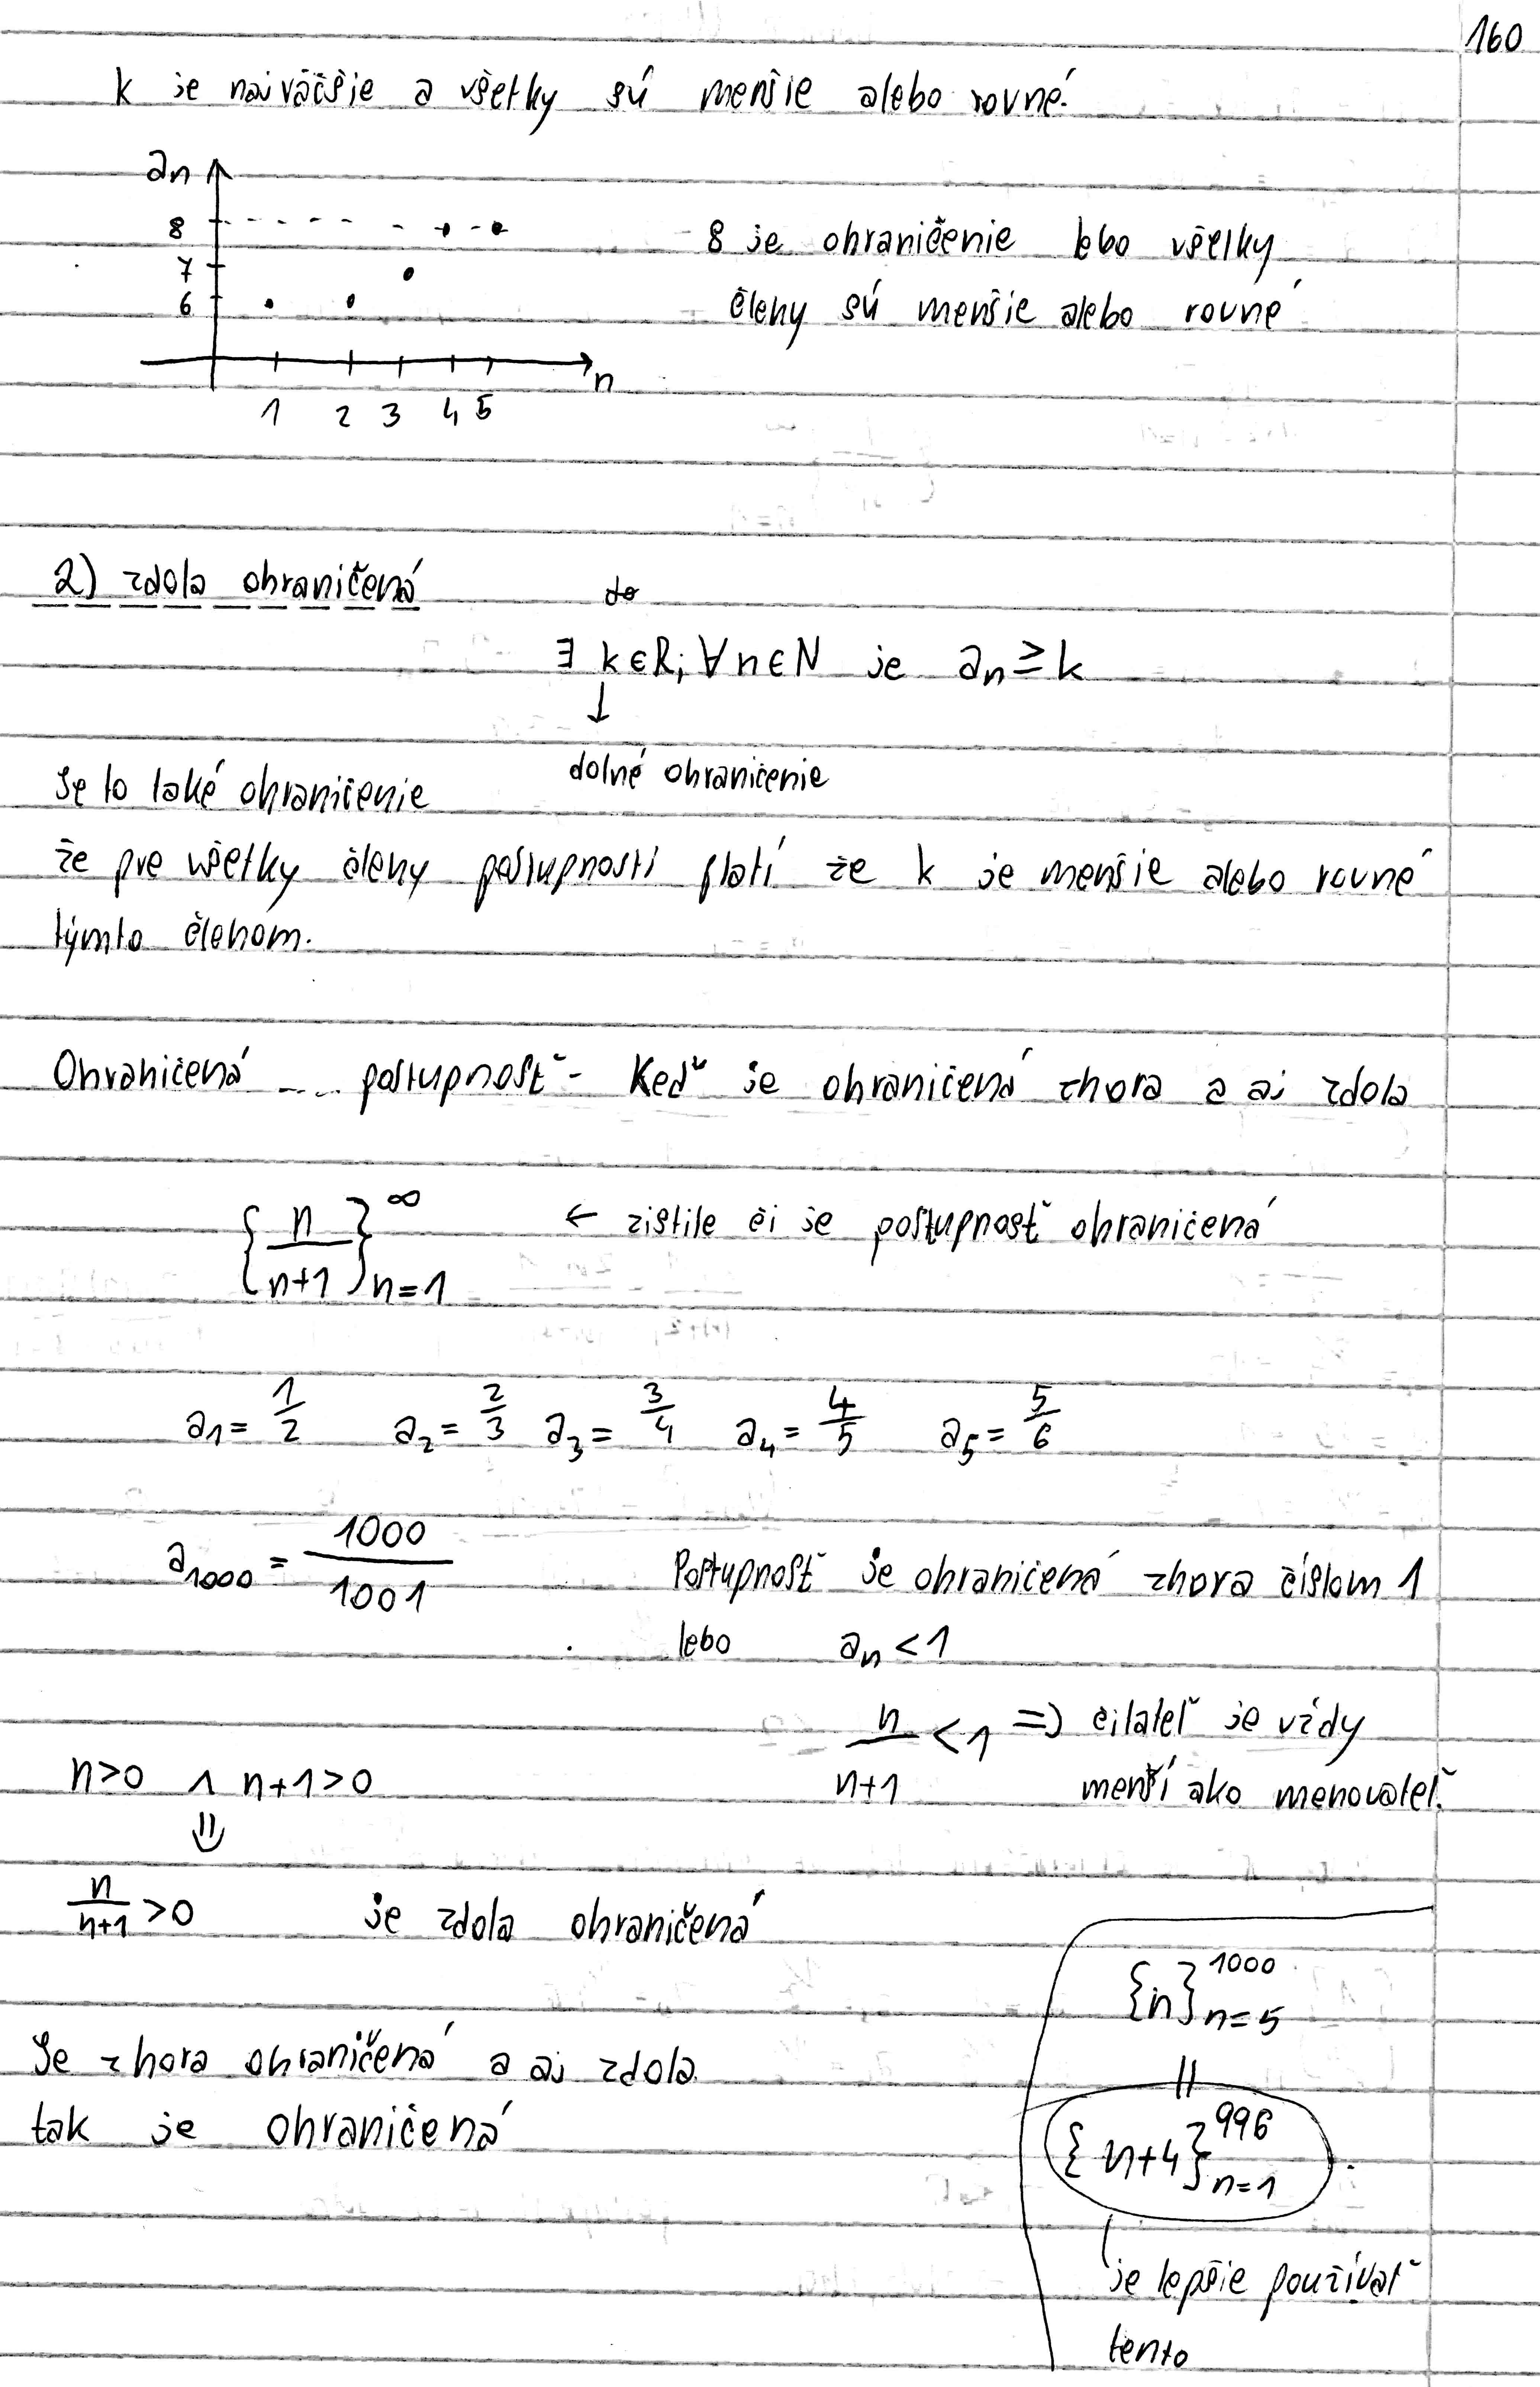 160
k je najväčšie a všetky sú menšie alebo rovné.
an
8
7
6
1 2 3 4 5
n
8 je ohraničenie lebo všetky
členy sú menšie alebo rovné
2) zdola ohraničená
∃ k∈R; ∀n∈N je an ≥ k
↓
dolné ohraničenie
Je to také ohraničenie
že pre všetky členy postupnosti platí že k je menšie alebo rovné
týmto členom.
Ohraničená ... postupnosť - Keď je ohraničená zhora a aj zdola
{n/(n+1)}∞n=1 ← zistite či je postupnosť ohraničená
a1 = 1/2 a2 = 2/3 a3 = 3/4 a4 = 4/5 a5 = 5/6
a1000 = 1000/1001
Postupnosť je ohraničená zhora číslom 1
lebo an < 1
n/(n+1) < 1 => čitateľ je vždy
menší ako menovateľ.
n>0 ∧ n+1>0
⇓
n/(n+1) > 0 je zdola ohraničená
Je zhora ohraničená a aj zdola
tak je ohraničená
{n}1000n=5
||
{n+4}996n=1
je lepšie používať
tento